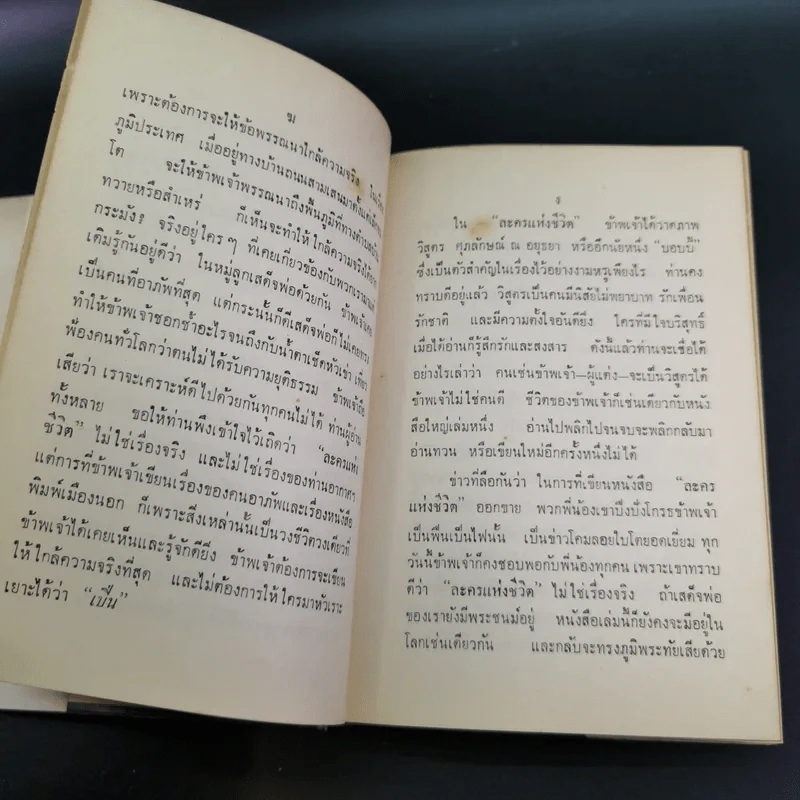 ฆ
เพราะต้องการจะให้ข้อพรรณนาใกล้ความจริง
ภูมิประเทศ เมื่ออยู่ทางบ้านถนนสามเสนมาตั้งแต่เล็กจน
โต จะให้ข้าพเจ้าพรรณนาถึงพื้นภูมิที่ทางตำบล
ทวายหรือสำเหร่ ก็เห็นจะทำให้ใกล้ความจริงได้ยาก
กระมัง? จริงอยู่ใครๆ ที่เคยเกี่ยวข้องกับพวกเรามาแต่
เดิมรู้กันอยู่ดีว่า ในหมู่ลูกเสด็จพ่อด้วยกัน ข้าพเจ้า
เป็นคนที่อาภัพที่สุด แต่กระนั้นก็ดีเสด็จพ่อก็ไม่เคยทรง
ทำให้ข้าพเจ้าชอกช้ำอะไรจนถึงกับน้ำตาเช็ดหัวเข่า เที่ยว
ฟ้องคนทั่วโลกว่าตนไม่ได้รับความยุติธรรม ข้าพเจ้าถือ
เสียว่า เราจะเคราะห์ดีไปด้วยกันทุกคนไม่ได้ ท่านผู้อ่าน
ทั้งหลาย ขอให้ท่านพึงเข้าใจไว้เถิดว่า “ละครแห่ง
ชีวิต” ไม่ใช่เรื่องจริง และไม่ใช่เรื่องของท่านอากาศฯ
แต่การที่ข้าพเจ้าเขียนเรื่องของคนอาภัพและเรื่องหนังสือ
พิมพ์เมืองนอก ก็เพราะสิ่งเหล่านั้นเป็นวงชีวิตวงเดียวที่
ข้าพเจ้าได้เคยเห็นและรู้จักดียิ่ง ข้าพเจ้าต้องการจะเขียน
ให้ใกล้ความจริงที่สุด และไม่ต้องการให้ใครมาหัวเราะ
เยาะได้ว่า “เปิ่น”
ง
ใน “ละครแห่งชีวิต” ข้าพเจ้าได้วาดภาพ
วิสูตร ศุภลักษณ์ ณ อยุธยา หรืออีกนัยหนึ่ง “บอบบี้”
ซึ่งเป็นตัวสำคัญในเรื่องไว้อย่างงามหรูเพียงไร ท่านคง
ทราบดีอยู่แล้ว วิสูตรเป็นคนมีนิสัยไม่พยาบาท รักเพื่อน
รักชาติ และมีความตั้งใจอันดียิ่ง ใครที่มีใจบริสุทธิ์
เมื่อได้อ่านก็รู้สึกรักและสงสาร ดังนี้แล้วท่านจะเชื่อได้
อย่างไรเล่าว่า คนเช่นข้าพเจ้า—ผู้แต่ง—จะเป็นวิสูตรได้
ข้าพเจ้าไม่ใช่คนดี ชีวิตของข้าพเจ้าก็เช่นเดียวกับหนัง
สือใหญ่เล่มหนึ่ง อ่านไปพลิกไปจนจบจะพลิกกลับมา
อ่านทวน หรือเขียนใหม่อีกครั้งหนึ่งไม่ได้
ข่าวที่ลือกันว่า ในการที่เขียนหนังสือ “ละคร
แห่งชีวิต” ออกขาย พวกพี่น้องเขาบึ้งบั้งโกรธข้าพเจ้า
เป็นฟืนเป็นไฟนั้น เป็นข่าวโคมลอยใบโตยอดเยี่ยม ทุก
วันนี้ข้าพเจ้าก็คงชอบพอกับพี่น้องทุกคน เพราะเขาทราบ
ดีว่า “ละครแห่งชีวิต” ไม่ใช่เรื่องจริง ถ้าเสด็จพ่อ
ของเรายังมีพระชนม์อยู่ หนังสือเล่มนี้ก็ยังคงจะมีอยู่ใน
โลกเช่นเดียวกัน และกลับจะทรงภูมิพระทัยเสียด้วย